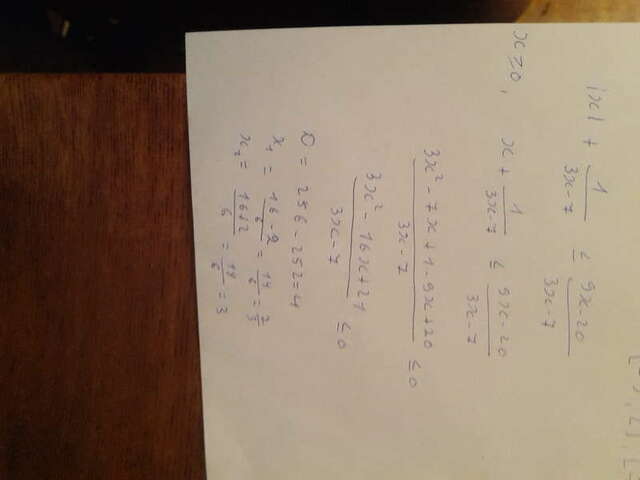 |x| + 1/(3x-7) ≤ (9x-20)/(3x-7)
x≥0, x + 1/(3x-7) ≤ (9x-20)/(3x-7)
(3x²-7x+1-9x+20)/(3x-7) ≤ 0
(3x²-16x+21)/(3x-7) ≤ 0
D = 256-252=4
x₁ = (16-2)/6 = 14/6 = 7/3
x₂ = (16+2)/6 = 18/6 = 3